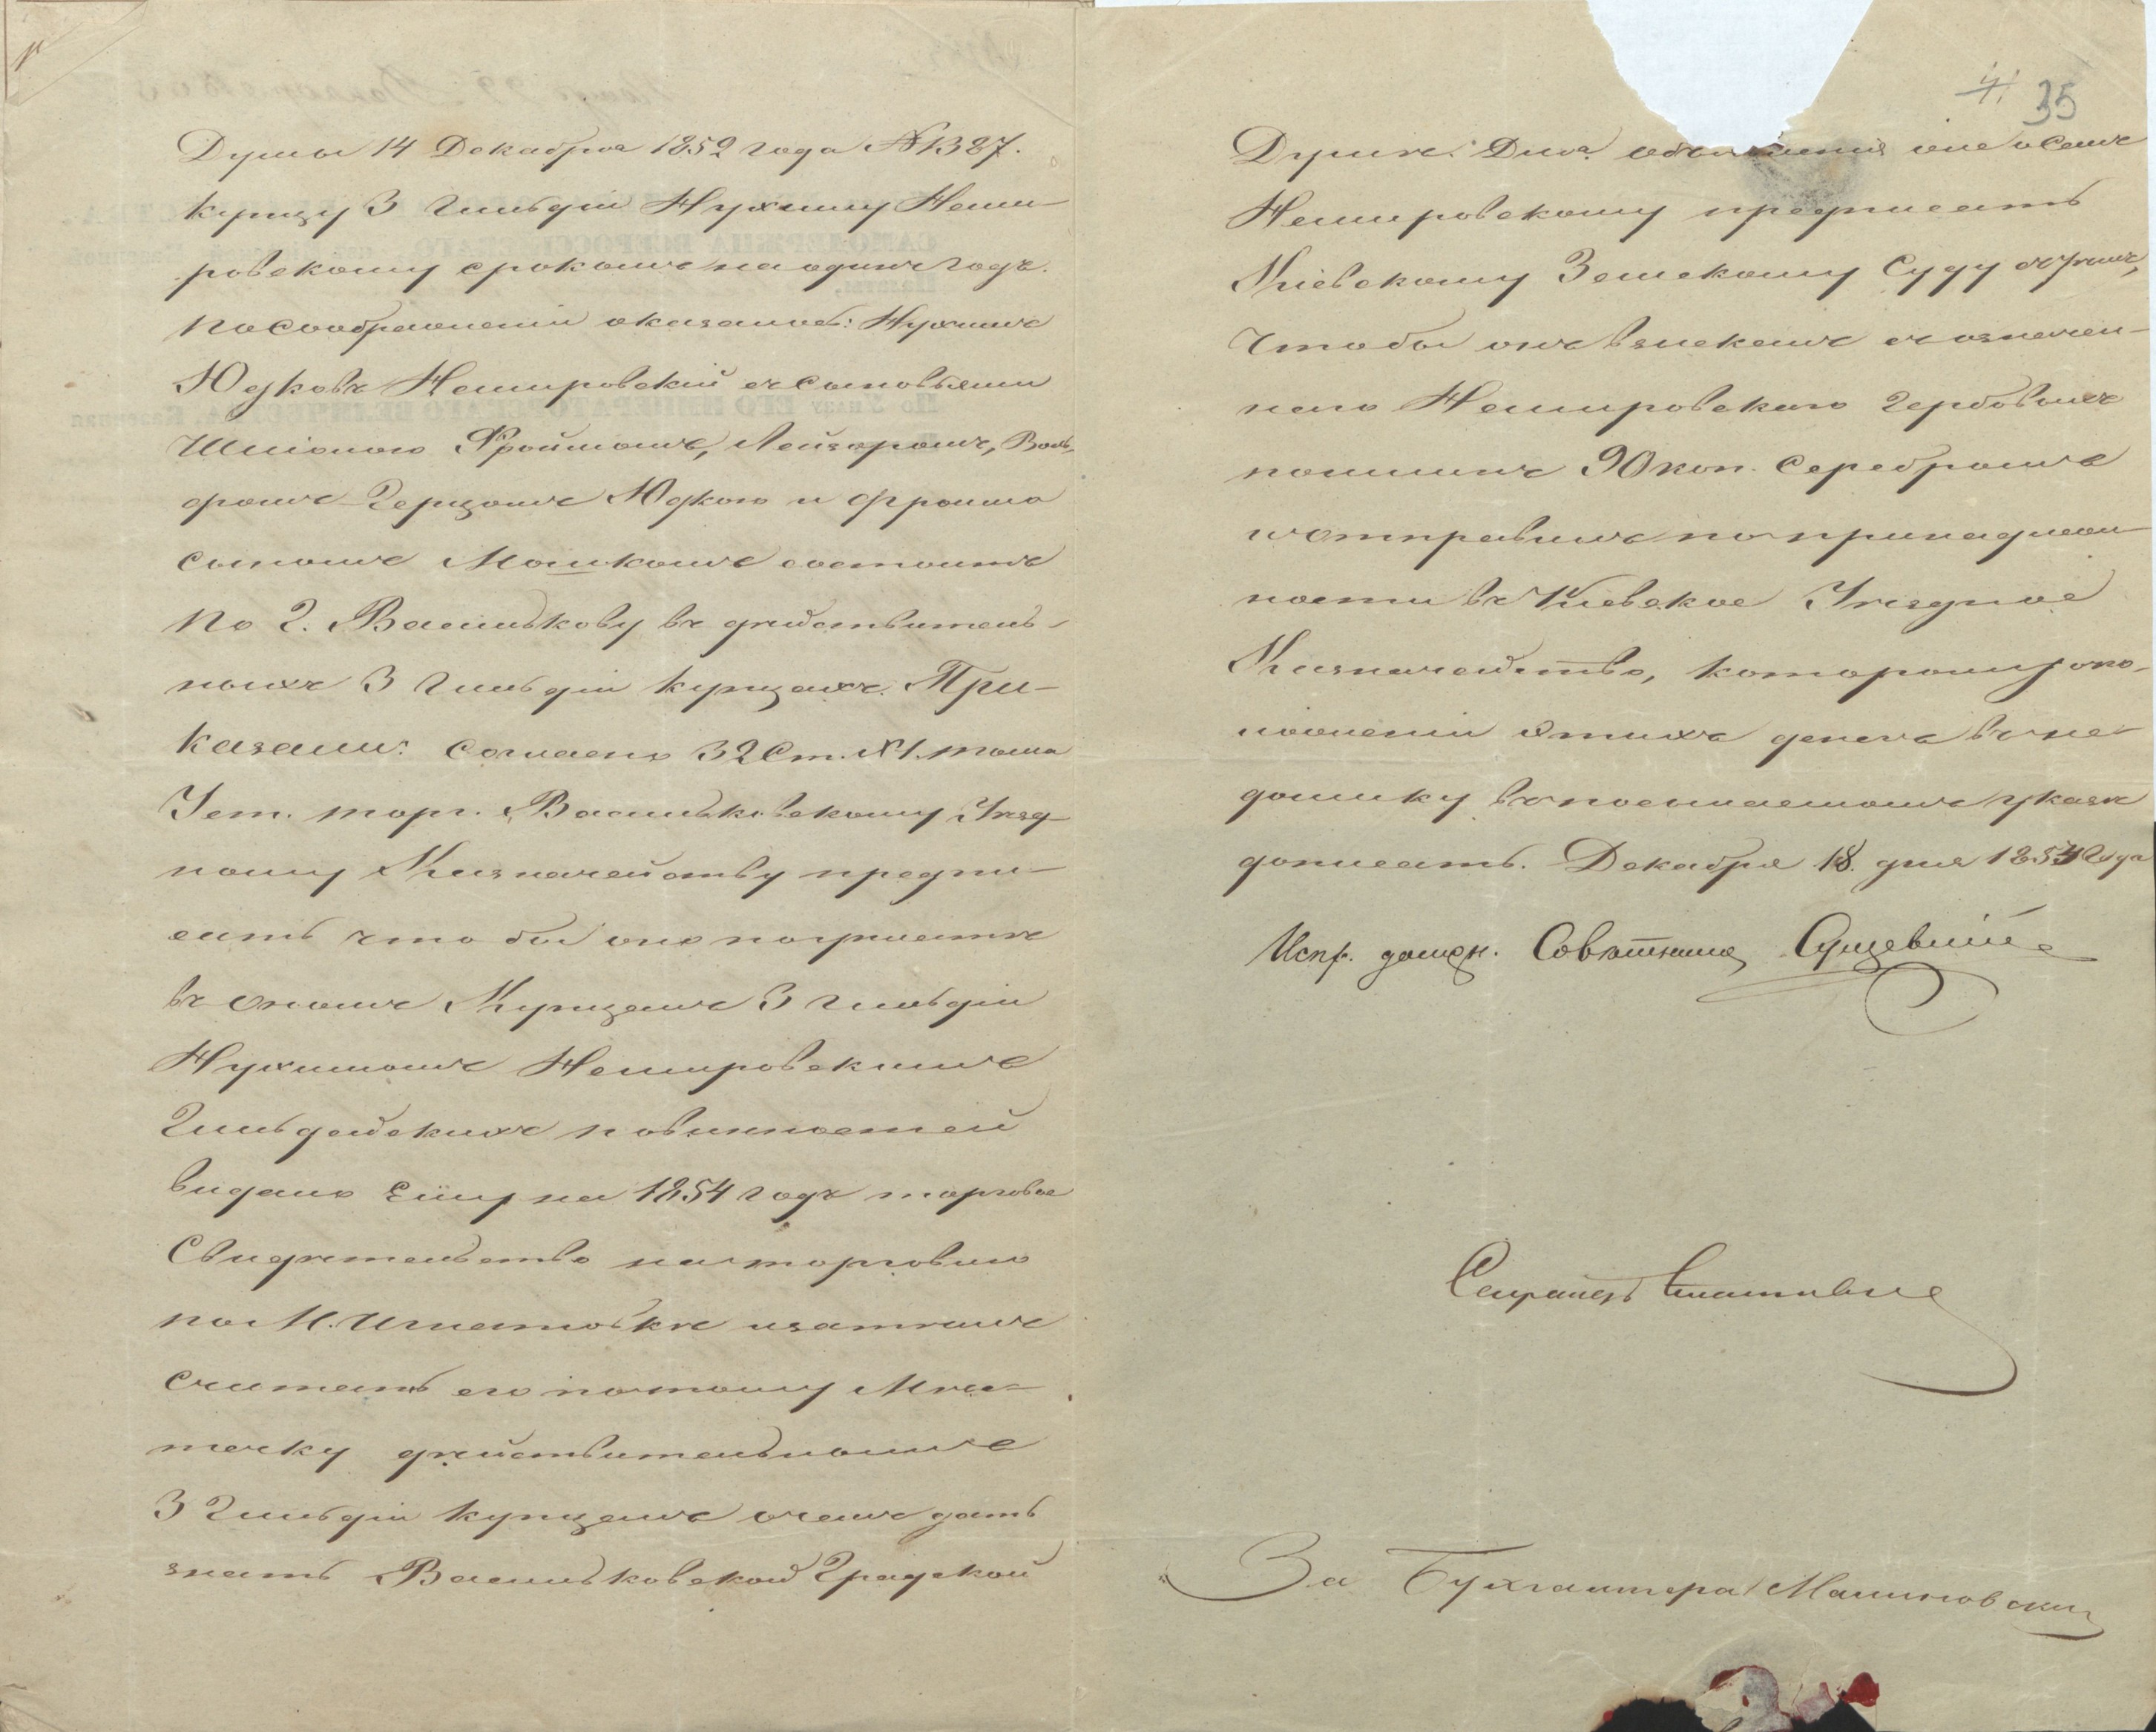 Думы 14 Декабря 1852 года №1387.
купцу 3 Гильдіи Нухиму Неми-
ровскому срокомъ на одинъ Годъ.
По соображеніи оказалось: Нухимъ
Юдковъ Немировскій съ Сыновьями
Шліомою Фроймомъ, Лейзеромъ, Воль-
фомъ-Герцомъ Юдкою и Фроима
сыномъ Мошкомъ состоитъ
по г. Василькову въ дѣйствитель-
ныхъ 3 Гильдіи купцахъ. При-
казали: Согласно 32 Ст. XI. тома
Уст. торг. Васильковскому Уѣзд-
ному Казначейству предпи-
сать что бы оно по уплатѣ
въ ономъ Купцемъ 3 Гильдіи
Нухимомъ Немировскимъ
Гильдейскихъ повинностей
видало Ему на 1854 годъ торговое
Свидѣтельство на торговлю
по М. Игнатовкѣ и затѣмъ
считать его по тому Мѣс-
течку дѣйствительнымъ
3 Гильдіи купцемъ о чемъ дать
знать Васильковской Градской
41 35
Думѣ. Для объявленія сие о семъ
Немировскому предписать
Кіевскому Земскому Суду съ тѣмъ,
что бы онъ взыскалъ съ означен-
наго Немировскаго гербовыхъ
пошлинъ 90 коп. Серебромъ
и отправилъ по принадлеж-
ности въ Кіевское Уѣздное
Казначейство, которому о по-
полненіи этихъ денегъ въ не-
доимку въ посылаемомъ указѣ
дописать. Декабря 18. дня 1853 Года
Испр. должн. Совѣтника
Секретарь
За Бухгалтера Малиновскій